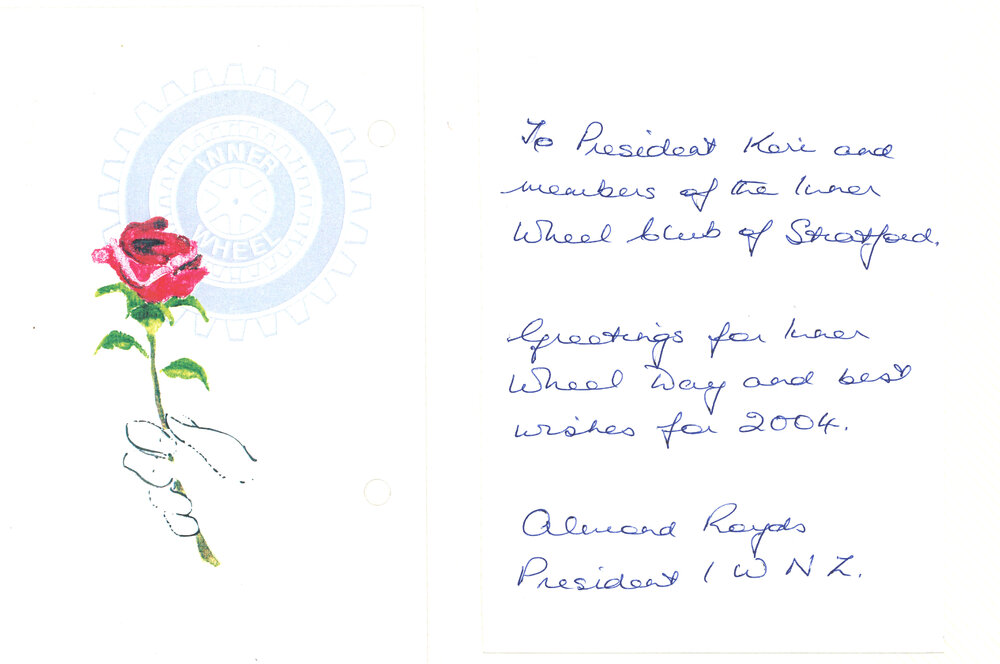 INNER
WHEEL
To President Kori and
members of the Inner
Wheel Club of Stratford.
Greetings for Inner
Wheel Day and best
wishes for 2004.
Almond Royds
President I W N Z.